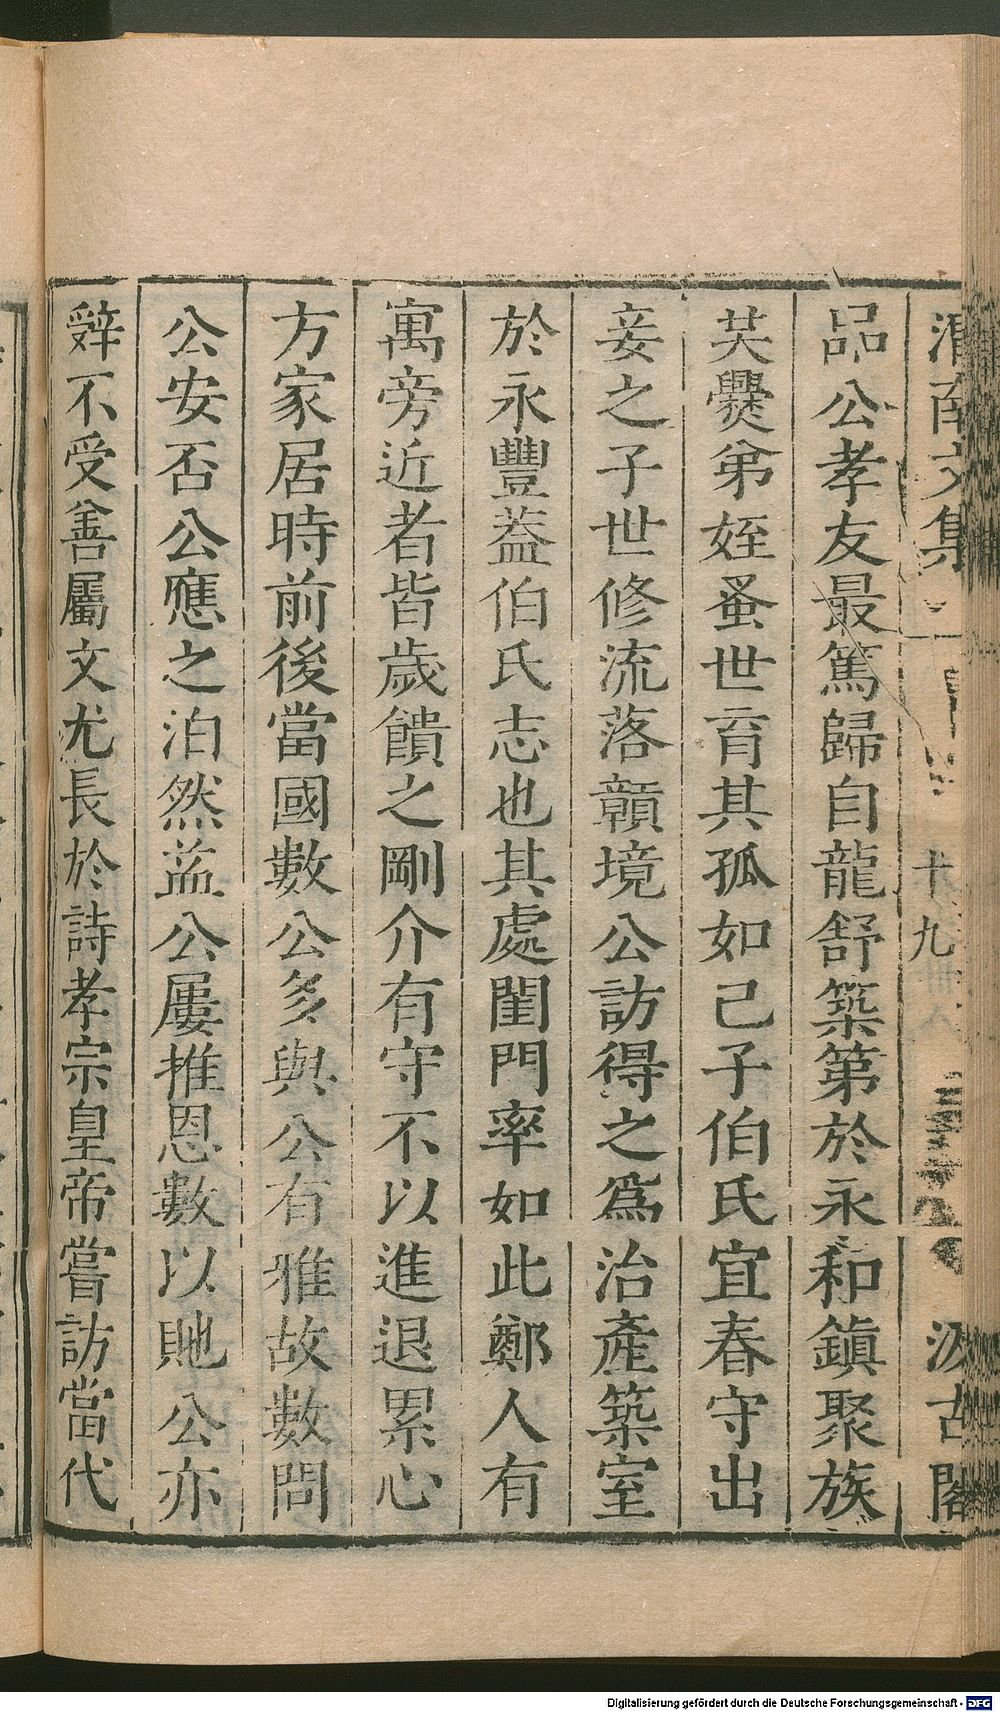 渭南文集 十九 汲古閣
品公孝友最篤歸自龍舒築第於永和鎮聚族
共爨弟姪蚤世育其孤如己子伯氏宜春守出
妾之子世修流落贛境公訪得之爲治產築室
於永豐葢伯氏志也其處閨門率如此鄭人有
寓旁近者皆歲饋之剛介有守不以進退累心
方家居時前後當國數公多與公有雅故數問
公安否公應之泊然葢公屢推恩數以貤公亦
辤不受善屬文尤長於詩孝宗皇帝嘗訪當代
Digitalisierung gefördert durch die Deutsche Forschungsgemeinschaft - DFG